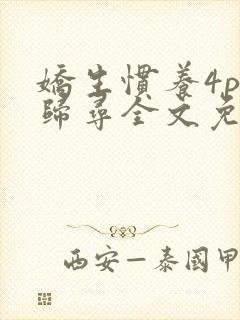 嬌生慣養4p
歸尋全文免
西安—泰國甲